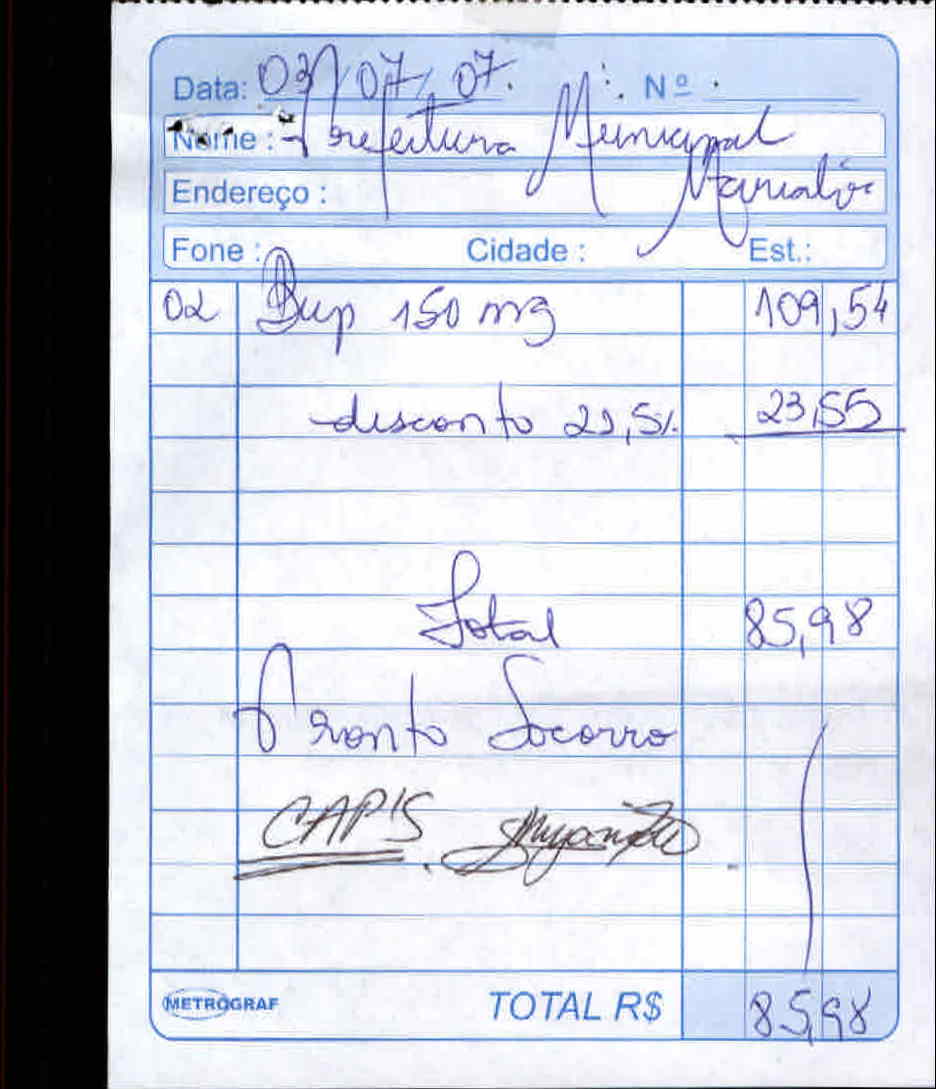 Data: 03/07/07. Nº
Nome: Prefeitura Municipal
Endereço:
Fone: Cidade: Est.:
02 Bup 150 mg 109,54
desconto 21,5% 23,55
Total 85,98
Pronto Socorro
CAP'S
METROGRAF TOTAL R$ 85,98